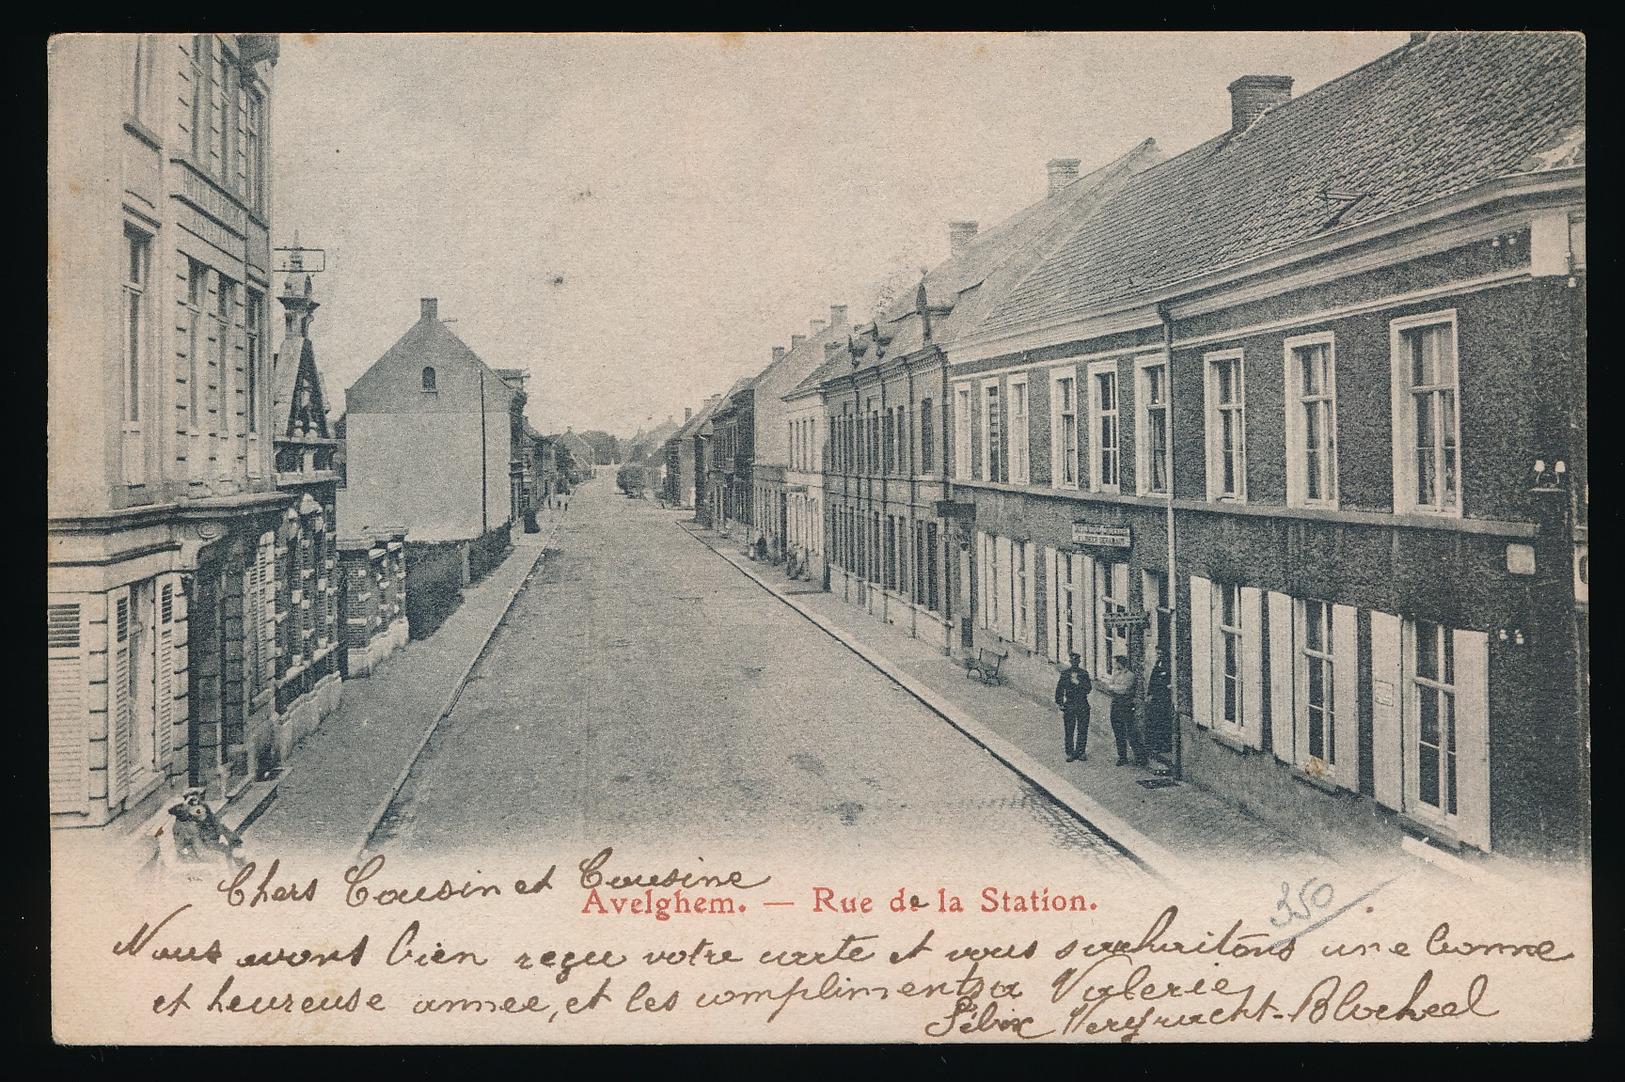 Chers Cousin et Cousine
Avelghem. — Rue de la Station.
350
Nous avons bien reçu votre carte et vous souhaitons une bonne
et heureuse annee, et les compliments a Valerie,
Félix